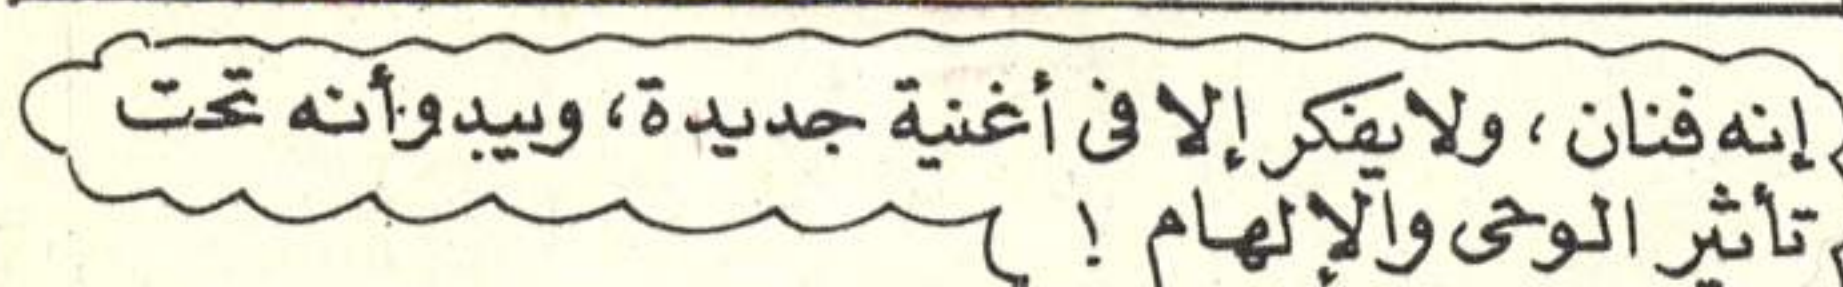 إنه فنان ، ولا يفكر إلا فى أغنية جديدة ، ويبدو أنه تحت
تأثير الوحى والإلهام !